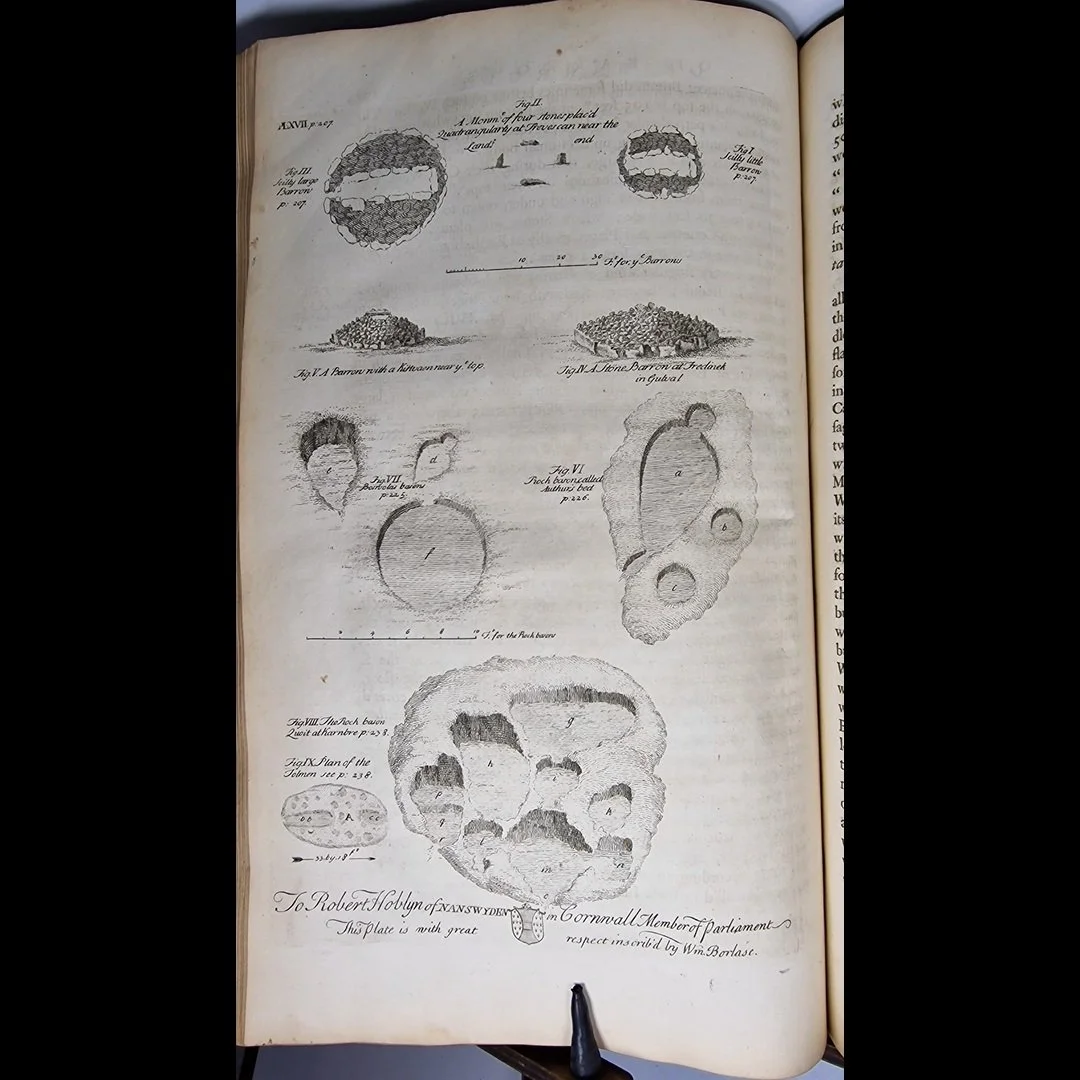 Pl. XVII p: 207
Fig. II.
A Monmt. of four stones plac'd
Quadrangularly at Trevescan near the
Lands end
Fig. III.
Scilly large
Barrow
p: 207
Fig I
Scilly little
Barrow
p: 207
10 20 30 Ft. for ye. Barrows
Fig. V. A Barrow with a Kistvaen near ye. top.
Fig. IV. A Stone Barrow at Tredinek
in Gulval
e
d
Fig. VII
basons
p: 225
f
Fig. VI
Rock bason, called
Arthur's bed
p: 226.
a
b
c
2 4 6 8 10 Ft. for the Rock basons
Fig. VIII. The Rock bason
Quoit at Karnbre p: 238.
Fig. IX. Plan of the
Tolmen see p: 238.
bb A cc
33. by. 18 ft.
g
h
i
p
k
q
r
l
m
n
o
To Robert Hoblyn of NANSWYDEN in Cornwall Member of Parliament
This Plate is with great respect inscrib'd by Wm. Borlase.